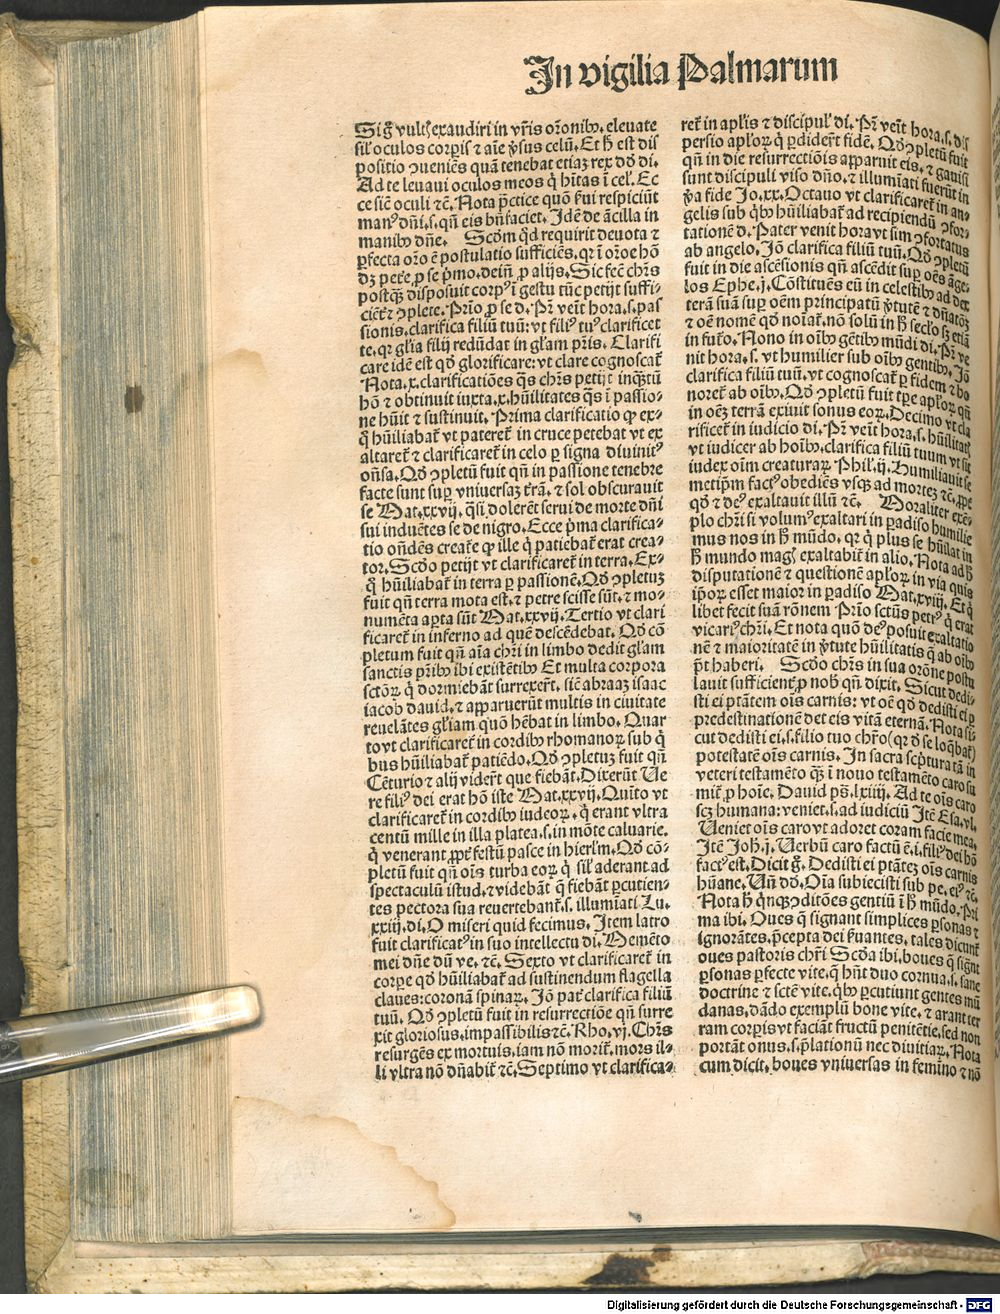 In vigilia Palmarum
Sigr̄ vultꝭ exaudiri in vr̄is or̄onibꝰ, eleuate
sil̓ oculos corꝑis ⁊ aīe ꝟsus celū. Et ħ est dis
positio ꝯueniēs quā tenebat etiaꝫ rex dd̄ di.
Ad te leuaui oculos meos q̇ hītas ī cel̓. Ec
ce siē oculi ⁊ē. Nota ꝑctice quō ẜui respiciūt
manꝰ dn̄i.s.qn̄ eis bn̄faciet. Idē de ācilla in
manibꝰ dn̄e. Scd̄m qd̓ requirit deuota ⁊
ꝑfecta or̄o ē postulatio sufficiēs, qꝛ ī or̄oe hō
dꝫ peter̄ ꝓ se p̄mo. dein̄ ꝓ alijs. Sic fec̄ chr̄s
postqꝫ disposuit corpꝰ ī gestu tūc petijt suffi⸗
ciēt̄ ⁊ ꝯplete. Prīo ꝓ se d. Pr̄ veīt hora.s.pas
sionis. clarifica filiū tuū: vt filiꝰ tuꝰ clarificet
te. qꝛ gl̄ia filij redūdat in gl̄am pr̄is. Clarifi
care idē est qd̓ glorificare: vt clare cognoscat̄
Nota.x.clarificatiōes q̄s chr̄s petijt inqꝫtū
hō ⁊ obtinuit iuxta.x.hūilitates q̄s ī passio⸗
ne hūit ⁊ sustinuit. Prima clarificatio ꝙ ex⸗
q̇ hūiliabat̄ vt pateret̄ in cruce petebat vt ex
altaret̄ ⁊ clarificaret̄ in celo ꝑ signa diuinitꝰ
on̄sa. Qd̓ ꝯpletū fuit qn̄ in passione tenebre
facte sunt suꝑ vniuersaꝫ tr̄ā. ⁊ sol obscurauit
se Mat.xxvij. q̄si dolerēt serui de morte dn̄i
sui induētes se de nigro. Ecce p̄ma clarifica⸗
tio on̄dēs creat̄e ꝙ ille q̇ patiebat̄ erat crea⸗
tor. Scd̄o petijt vt clarificaret̄ in terra. Ex⸗
q̇ hūiliabat̄ in terra ꝑ passionē. Qd̓ ꝯpletuꝫ
fuit qn̄ terra mota est. ⁊ petre scisse sūt. ⁊ mo⸗
numēta aꝑta sūt Mat.xxvij. Tertio vt clari
ficaret̄ in inferno ad quē descēdebat. Qd̓ cō
pletum fuit qn̄ aīa chr̄i in limbo dedit gl̄am
sanctis pr̄ibꝰ ibi existētibꝰ Et multa corpora
sctōꝝ q̇ dormiebāt surrexer̄t. siē abraaꝫ isaac
iacob dauid. ⁊ apparuerūt multis in ciuitate
reuelātes gl̄iam quō hēbat in limbo. Quar
to vt clarificaret̄ in cordibꝰ rhomanoꝝ sub q̇
bus hūiliabat̄ patiēdo. Qd̓ ꝯpletuꝫ fuit qn̄
Cēturio ⁊ alij vider̄t que fiebāt. Dixerūt Ve
re filiꝰ dei erat hō iste Mat.xxvij. Quīto vt
clarificaret̄ in cordibꝰ iudeoꝝ. q̇ erant vltra
centū mille in illa platea.s.in mōte caluarie.
q̇ venerant ꝓpt̄ festū pasce in hierl̄m. Qd̓ cō⸗
pletū fuit qn̄ oīs turba eoꝝ q̇ sil̓ aderant ad
spectaculū istud. ⁊ videbāt q̄ fiebāt ꝑcutien⸗
tes pectora sua reuertebant̄.s.illumīati Lu.
xxiij.di. O miseri quid fecimus. Item latro
fuit clarificatꝰ in suo intellectu di. Memēto
mei dn̄e dū ve. ⁊ē. Sexto vt clarificaret̄ in
corꝑe qd̓ hūiliabat̄ ad sustinendum flagella
claues: coronā spinaꝝ. Iō pat̄ clarifica filiū
tuū. Qd̓ ꝯpletū fuit in resurrectiōe qn̄ surre
xit gloriosus. impassibilis ⁊ē. Rho.vj. Chr̄s
resurgēs ex mortuis. iam nō morit̄. mors il⸗
li vltra nō dn̄abit̄ ⁊ē. Septimo vt clarifica⸗
ret̄ in apl̓is ⁊ discipul̓ di. Pr̄ veīt hora.s.dis
persio apl̓oꝝ q̇ ꝑdider̄t fidē. Qd̓ ꝯpletū fuit
qn̄ in die resurrectiōis apparuit eis. ⁊ gauisi
sunt discipuli viso dn̄o. ⁊ illumīati fuerūt in
ꝟa fide Jo.xx. Octauo vt clarificaret̄ in an⸗
gelis sub q̇bꝰ hūiliabat̄ ad recipiendū ꝯfor⸗
tationē d. Pater venit hora vt sim ꝯfortatus
ab angelo. Iō clarifica filiū tuū. Qd̓ ꝯpletū
fuit in die ascēsionis qn̄ ascēdit suꝑ oēs āge⸗
los Ephe.j. Cōstituēs eū in celestibꝰ ad dex
terā suā suꝑ oēm principatū ꝟtutē ⁊ dn̄atōꝫ
⁊ oē nomē qd̓ noīat̄. nō solū in ħ secl̓o sꝫ etiā
in fut̄o. Nono in oībꝰ gētibꝰ mūdi di. Pr̄ ve
nit hora.s. vt humilier sub oībꝰ gentibꝰ. Iō
clarifica filiū tuū. vt cognoscat̄ ꝑ fidem ⁊ ho
noret̄ ab oībꝰ. Qd̓ ꝯpletū fuit tꝑe apl̓oꝝ qn̄
in oēꝫ terrā exiuit sonus eoꝝ. Decimo vt cla
rificet̄ in iudicio di. Pr̄ veīt hora.s. hūilitatꝭ
vt iudicer ab hoībꝰ. clarifica filiū tuum vt sit
iudex oīm creaturaꝝ Phil̓.ij. Humiliauit se
metip̄m factꝰ obediēs vsqꝫ ad morteꝫ ⁊ē. ꝓpt̄
qd̓ ⁊ deꝰ exaltauit illū ⁊ē. Moraliter exē⸗
plo chr̄i si volumꝰ exaltari in ꝑadiso humilie
mus nos in ħ mūdo. qꝛ q̇ plus se hūiliat in
ħ mundo magꝭ exaltabit̄ in alio. Nota ad ħ
disputationē ⁊ questionē apl̓oꝝ in via quis
ip̄oꝝ esset maior in ꝑadiso Mat.xviij. Et q̇
libet fecit suā rōnem Prīo sctūs petrꝰ q̇ erat
vicariꝰ chr̄i. Et nota quō deꝰ posuit exaltatio
nē ⁊ maioritatē in ꝟtute hūilitatis q̄ ab oībꝰ
p̄t haberi. Scd̄o chr̄s in sua or̄one postu
lauit sufficient̄ ꝓ nob̓ qn̄ dixit. Sicut dedi⸗
sti ei ptātem oīs carnis: vt oē qd̓ dedisti ei ꝑ
predestinationē det eis vitā eternā. Nota si⸗
cut dedisti ei.s.filio tuo chr̄o (qꝛ d̓ se loq̄bat̄)
potestatē oīs carnis. In sacra sc̄ptura tā in
veteri testamēto qꝫ ī nouo testamēto caro su
mit̄ ꝓ hoīe. Dauid ps̄.lxiiij. Ad te oīs caro
scꝫ humana: veniet.s.ad iudiciū Itē Esa.vl.
Veniet oīs caro vt adoret coram facie mea.
Itē Joh̄.j. Verbū caro factū ē.i.filiꝰ dei hō
factꝰ est. Dicit g̊. Dedisti ei ptāteꝫ oīs carnis
hūane. Vn̄ dd̓. Oīa subiecisti sub pe. eiꝰ ⁊ē.
Nota ħ q̇nqꝫ ꝯditōes gentiū ī ħ mūdo. Pri
ma ibi. Oues q̄ signant simplices ꝑsonas ⁊
ignorātes. p̄cepta dei ẜuantes. tales dicunt̄
oues pastoris chr̄i Scd̄a ibi. boues q̇ sign̄t
ꝑsonas ꝑfecte vite. q̇ hn̄t duo cornua.s. sane
doctrine ⁊ sctē vite. q̇bꝰ ꝑcutiunt gentes mū
danas. dādo exemplū bone vite. ⁊ arant ter
ram corꝑis vt faciāt fructū penitētie. sed non
portāt onus.s.p̄lationū nec diuitiaꝝ. Nota
cum dicit. boues vniuersas in femīno ⁊ nō
Digitalisierung gefördert durch die Deutsche Forschungsgemeinschaft - DFG